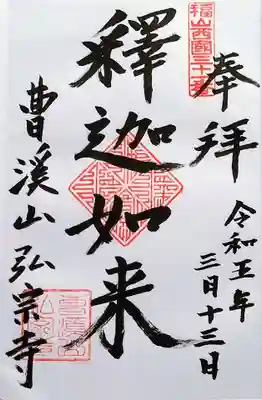 奉拝
令和五年
三月十三日
福山西國三十三霊場
釋迦如来
曹溪山弘宗寺